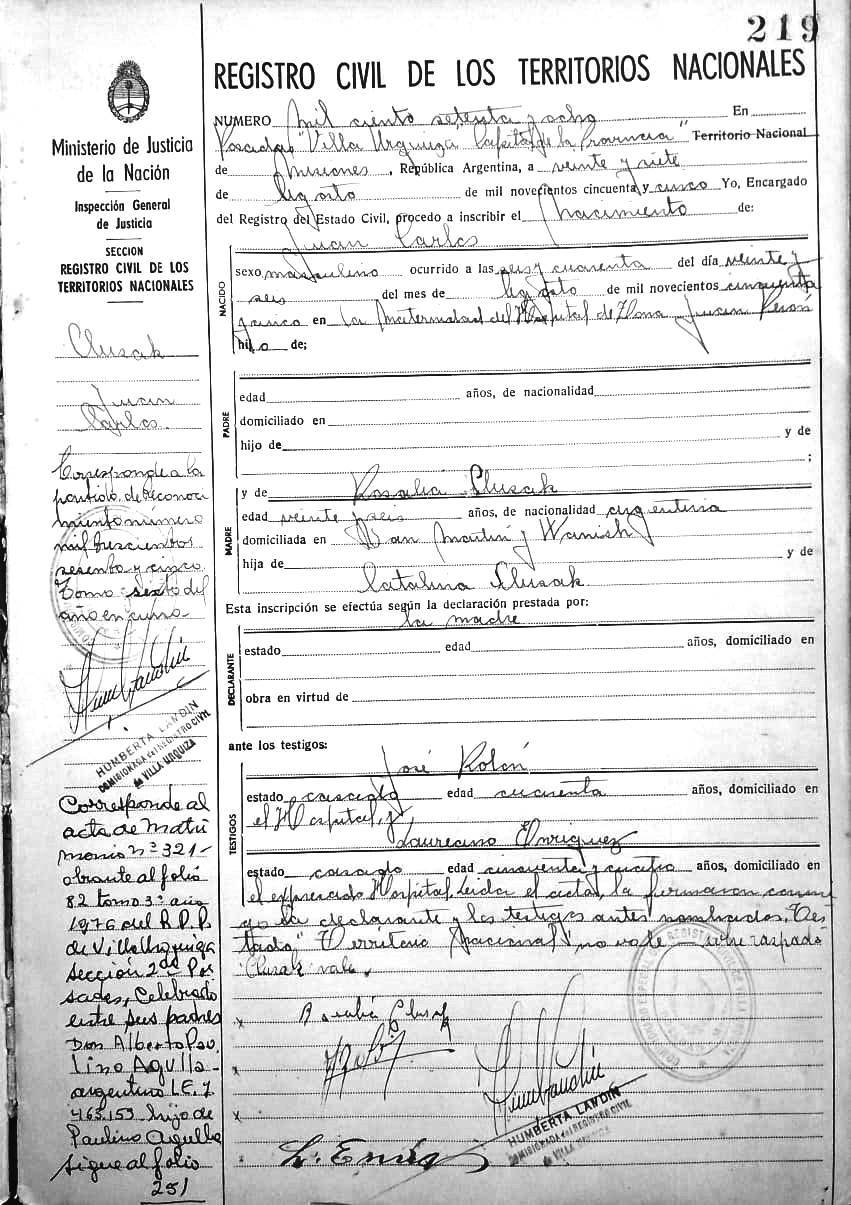 219
REGISTRO CIVIL DE LOS TERRITORIOS NACIONALES
Ministerio de Justicia
de la Nación
Inspección General
de Justicia
SECCION
REGISTRO CIVIL DE LOS
TERRITORIOS NACIONALES
Clusak
Juan
Carlos.
Corresponde a la
partida de reconoci
miento número
mil trescientos
sesenta y cinco
Tomo: sexto del
año en curso
HUMBERTA LANDIN
COMISIONADA del REGISTRO CIVIL
de VILLA URQUIZA
Corresponde al
acta de Matri
monio nº 321-
obrante al folio
82 tomo 3º año
1976 del R.P.P.
de Villa Urquiza
Sección 2da Po
sadas, Celebrado
entre sus padres
Don Alberto Pau
lino Agulla-
argentino L.E. 7
465.153 hijo de
Paulino Agulla
sigue al folio
251
NUMERO Mil ciento setenta y ocho En
Posadas "Villa Urquiza Capital de la Provincia" Territorio Nacional
de Misiones, República Argentina, a veinte y siete
de Agosto de mil novecientos cincuenta y cinco Yo, Encargado
del Registro del Estado Civil, procedo a inscribir el Nacimiento de:
Juan Carlos
NACIDO
sexo masculino ocurrido a las seis y cuarenta del día veinte y
seis del mes de Agosto de mil novecientos cincuenta
y cinco en La Maternidad del Hospital de Zona Juan Perón
hijo de;
PADRE
edad años, de nacionalidad
domiciliado en
hijo de y de
;
MADRE
y de Rosalia Clusak
edad veinte y seis años, de nacionalidad argentina
domiciliada en San Martín y Wanish
hija de y de
Catalina Clusak
Esta inscripción se efectúa según la declaración prestada por:
la madre
DECLARANTE
estado edad años, domiciliado en
obra en virtud de
ante los testigos:
TESTIGOS
José Rolón
estado casado edad cuarenta años, domiciliado en
el Hospital, y
Laureano Enriquez
estado casado edad cincuenta y cuatro años, domiciliado en
el expresado Hospital. Leída el acta, la firmaron conmi
go la declarante y los testigos antes nombrados. Tes
tado "Territorio Nacional" no vale - sobre raspado
"Clusak" vale.
x Rosalia Clusak
x
x
x L. Enriq
HUMBERTA LANDIN
COMISIONADA del REGISTRO CIVIL
de VILLA URQUIZA